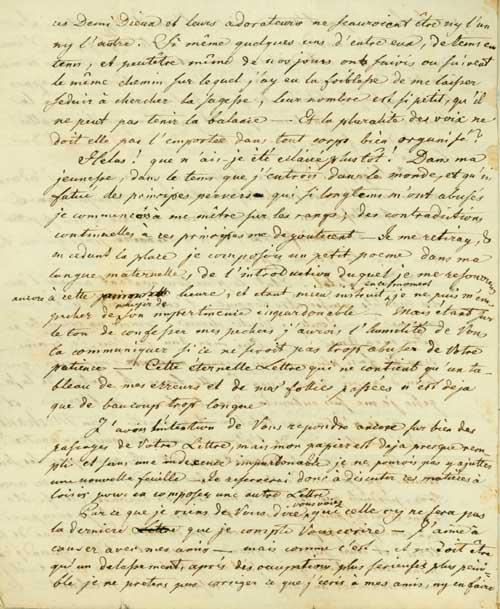 ces Demi Dieux et leurs adorateurs ne sçauroient être ny l'un
ny l'autre. Si même quelques uns d'entre eux, de tems en
tems, et peutêtre même de nos jours ont suivis ou suivent
le même chemin sur lequel j'ay eu la foiblesse de me laisser
seduir à chercher la sagesse, leur nombre est si petit, qu'il
ne peut pas tenir la balance — Et la pluralité des voix ne
doit elle pas l'emporter dans tout corps bien organisé?
Helas! que n'ais-je été eclairé plustot! Dans ma
jeunesse, dans le tems que j'entrois dans le monde, et qu'in
fatué des principes pervers qui si longtems m'ont abusés
je commençois a me mêtre sur les rangs; des contradictions
continuelles à ces principes me degouterent — Je me retiray, &
en cedant la place je composois un petit poeme dans ma
langue maternelle, de l'introduction duquel je me resouviens
encore à cette heure, et etant mieu instruit en ce moment, je ne puis m'em
pecher de rougir de son impertinence impardonable — Mais etant sur
le ton de confesser mes pechés j'aurois l'humilité de Vous
la communiquer si ce ne seroit pas trop abuser de Votre
patience — Cette eternelle Lettre qui ne contient qu'un ta-
bleau de mes erreurs et de mes folies passées n'est deja
que de beaucoup trop longue
J'avois l'intention de Vous repondre encore sur bien des
passages de Votre Lettre, mais mon papier est deja presque rem
pli et sans une indecence impardonable je ne pourois pas y ajuter
une nouvelle feuille — Je reserverai donc à discuter ces matières à
loisir pour en composer une autre Lettre
Par ce que je viens de Vous dire, vous voiez que celle cy ne sera pas
la derniere Lettre que je compte Vous ecrire — J'aime à
causer avec mes amis — mais comme c'est — et ne doit être
qu'un delassement, après des occupations plus serieuses plus peni
ble je ne pretens pas corriger ce que j'ecris à mes amis, ny en faire